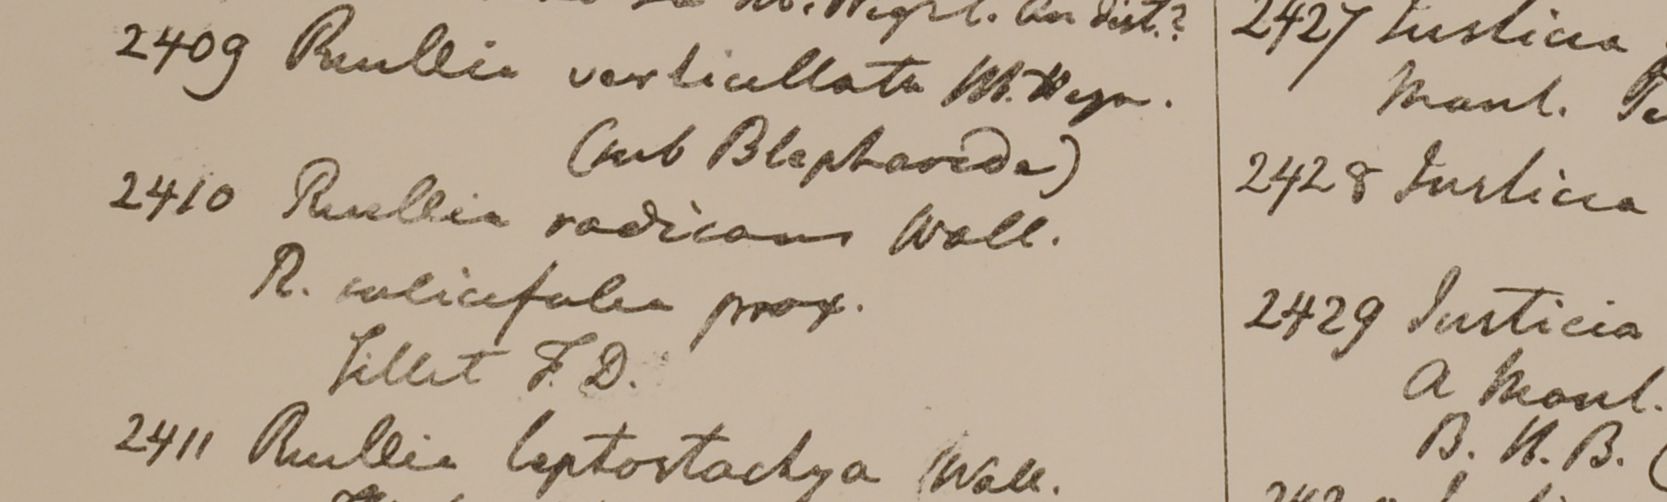 An dist.?
2409 Ruellia verticillata M. Heyn.
(sub Blepharide)
2410 Ruellia radicans Wall.
R. salicifolia prox.
Sillet F. D.
2411 Ruellia leptostachya Wall.
2427 Justicia
Moul.
2428 Justicia
2429 Justicia
A Moul.
B. H. B. (